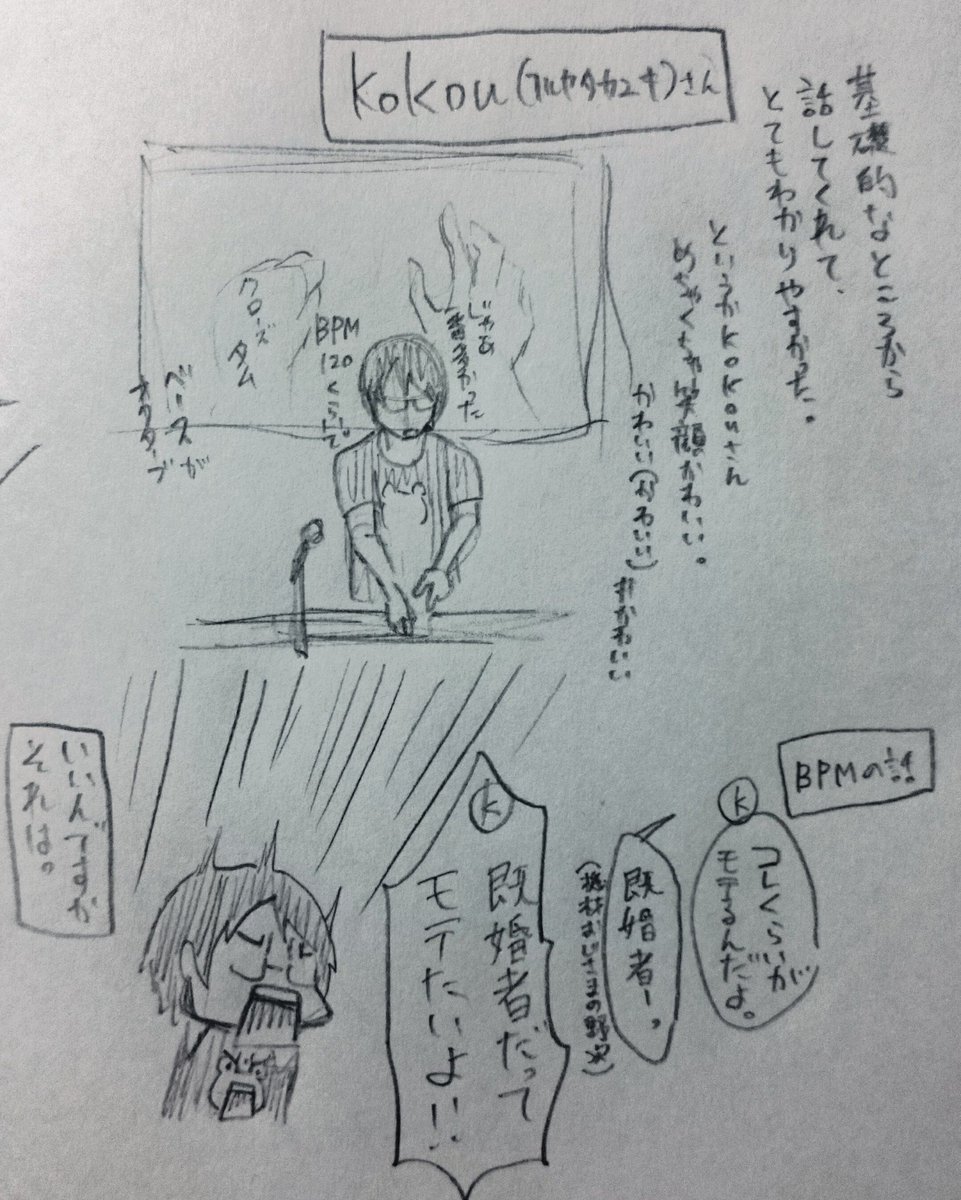 kokou(フルヤタカユキ)さん
基礎的なところから
話してくれて、
とてもわかりやすかった。
というかkokouさん
めちゃくちゃ笑顔かわいい。
かわいい(かわいい)
※かわいい
じゃあ
BPM
120
くらいで。
クローズ
タム
ベースが
オクターブ
BPMの話
k
コレくらいが
モテるんだよ。
既婚者ー。
(機材おじさまの野次)
k
既婚者だって
モテたいよ!!
いいんですか
それは。